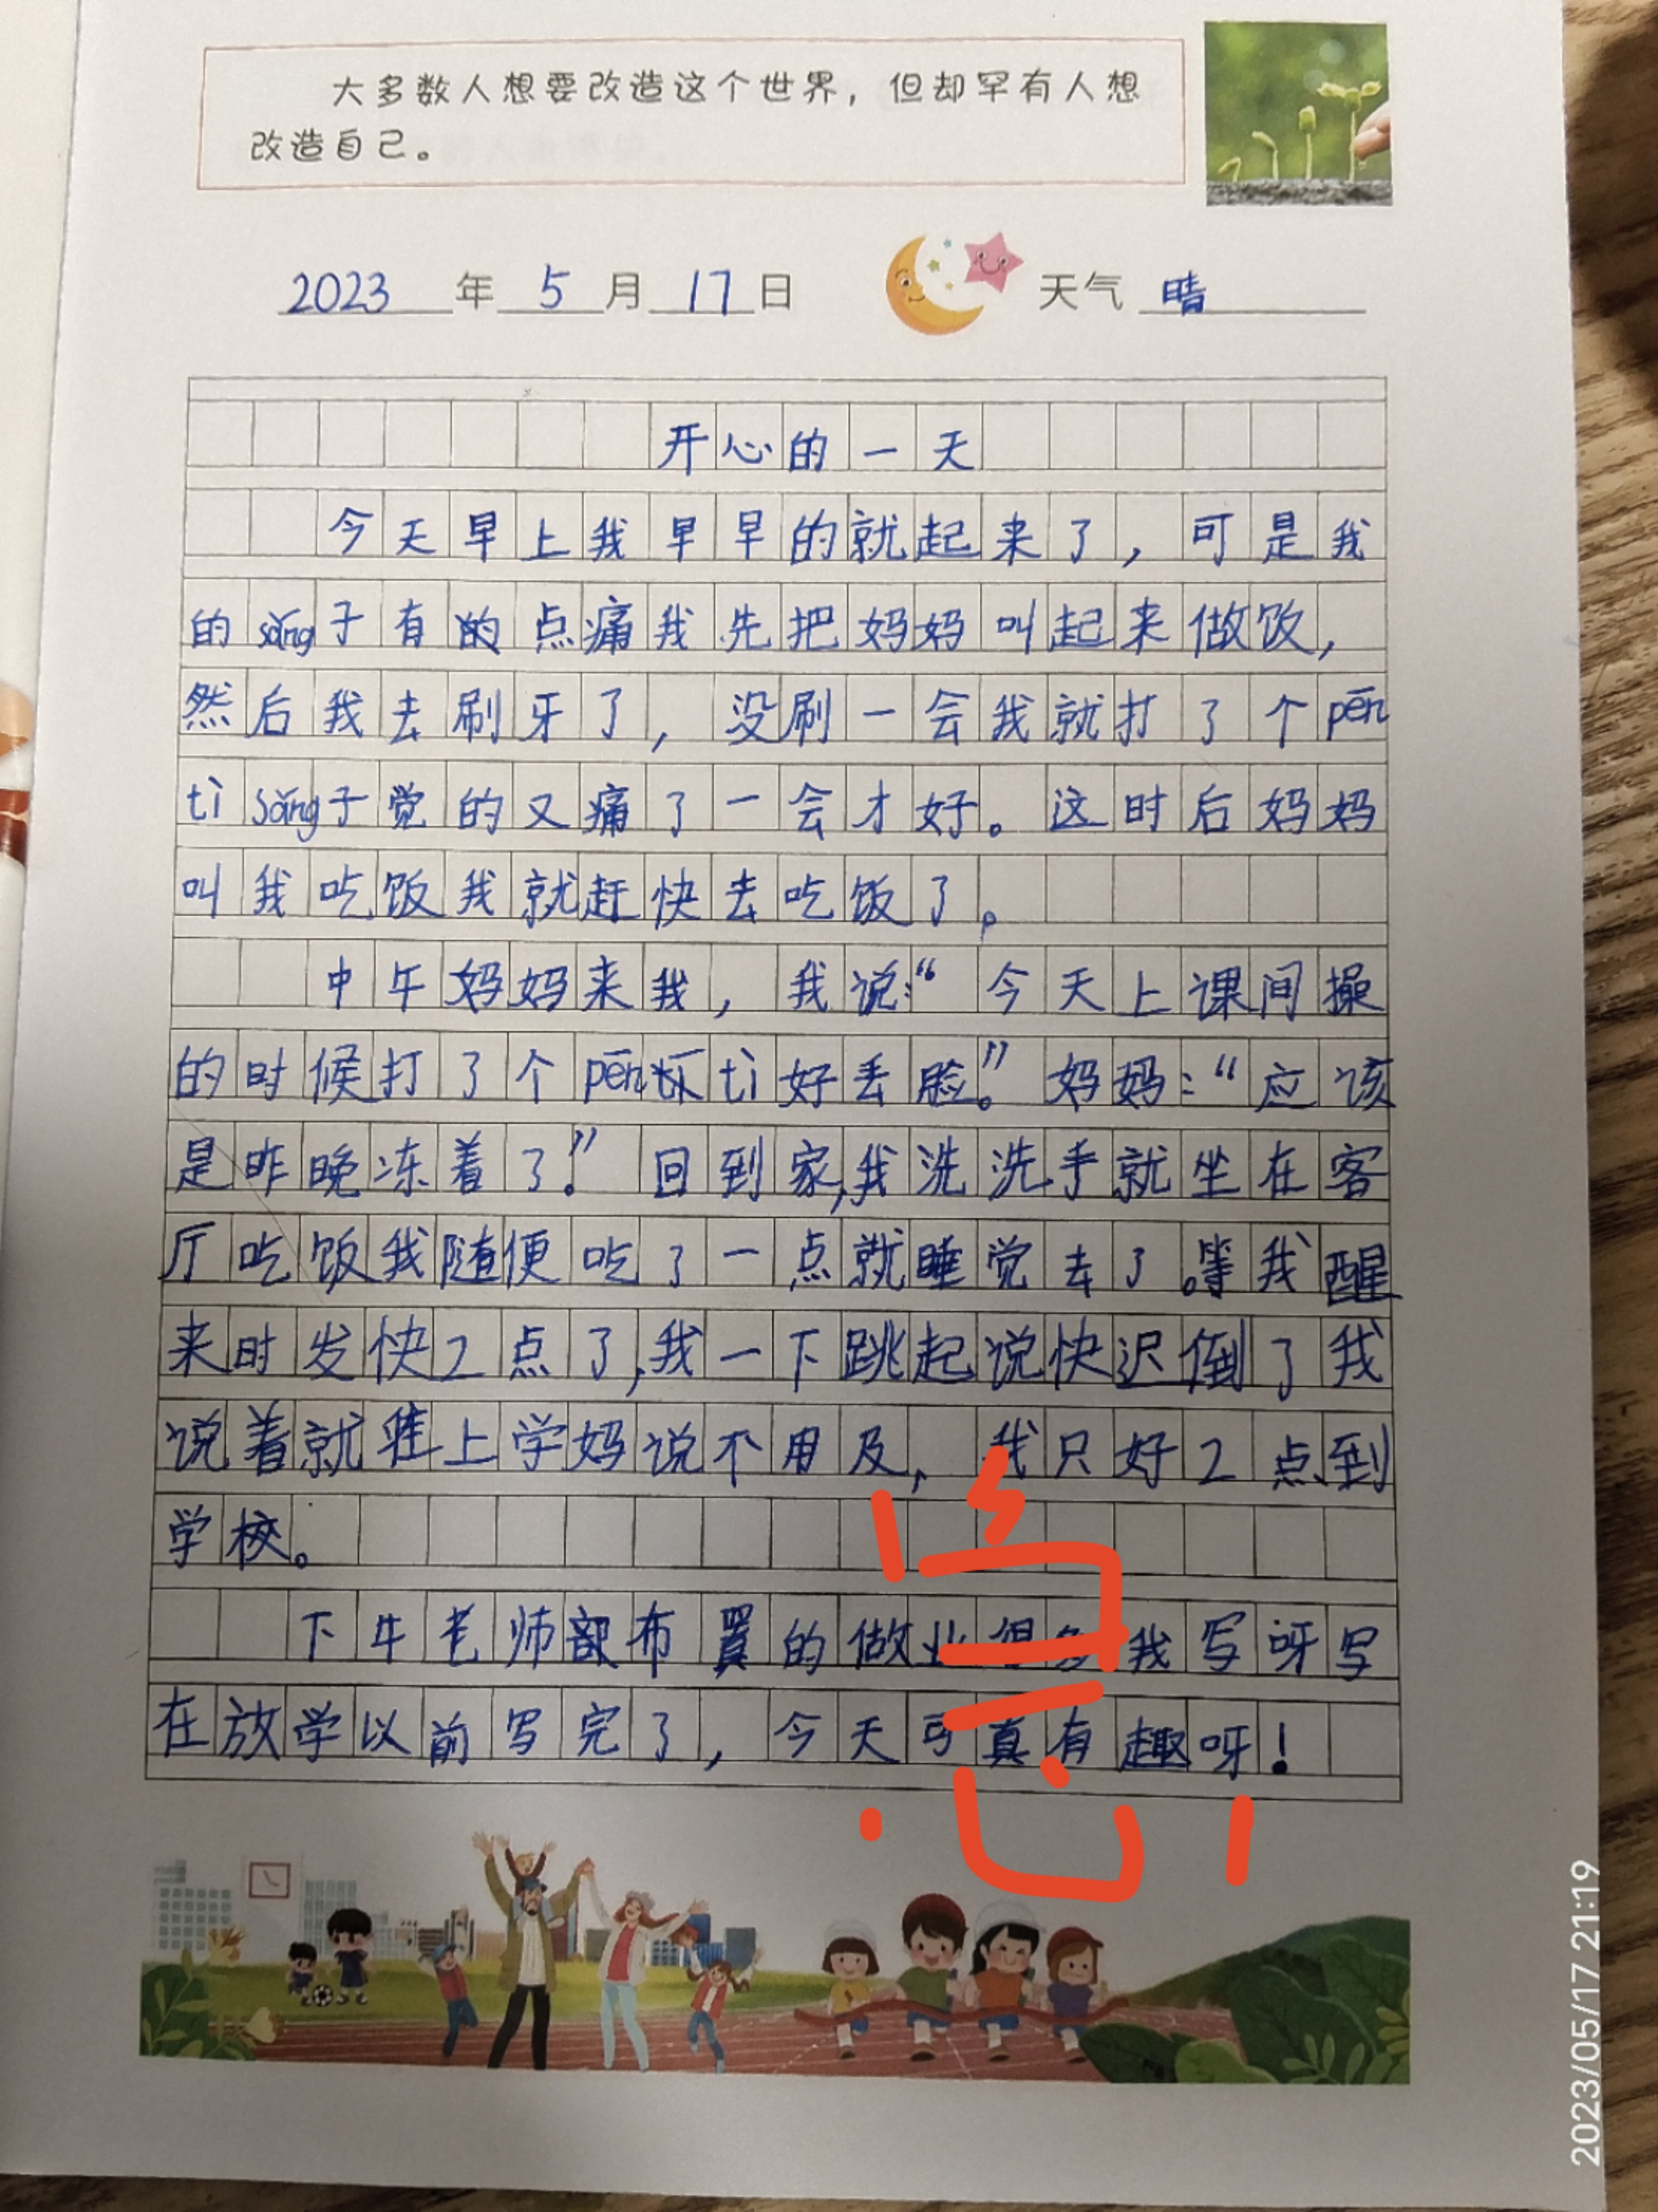 大多数人想要改造这个世界，但却罕有人想
改造自己。
2023年5月17日 天气 晴
开心的一天
今天早上我早早的就起来了，可是我
的sǎng子有的点痛我先把妈妈叫起来做饭，
然后我去刷牙了，没刷一会我就打了个pēn
tì sǎng子觉的又痛了一会才好。这时后妈妈
叫我吃饭我就赶快去吃饭了。
中午妈妈来我，我说：“今天上课间操
的时候打了个pēn tì好丢脸。”妈妈：“应该
是昨晚冻着了。”回到家，我洗洗手就坐在客
厅吃饭我随便吃了一点就睡觉去了。等我醒
来时发快2点了，我一下跳起说快迟倒了我
说着就上学妈说不用及，我只好2点到
学校。
下午老师部布置的做业很多我写呀写
在放学以前写完了，今天可真有趣呀！
2023/05/17 21:19